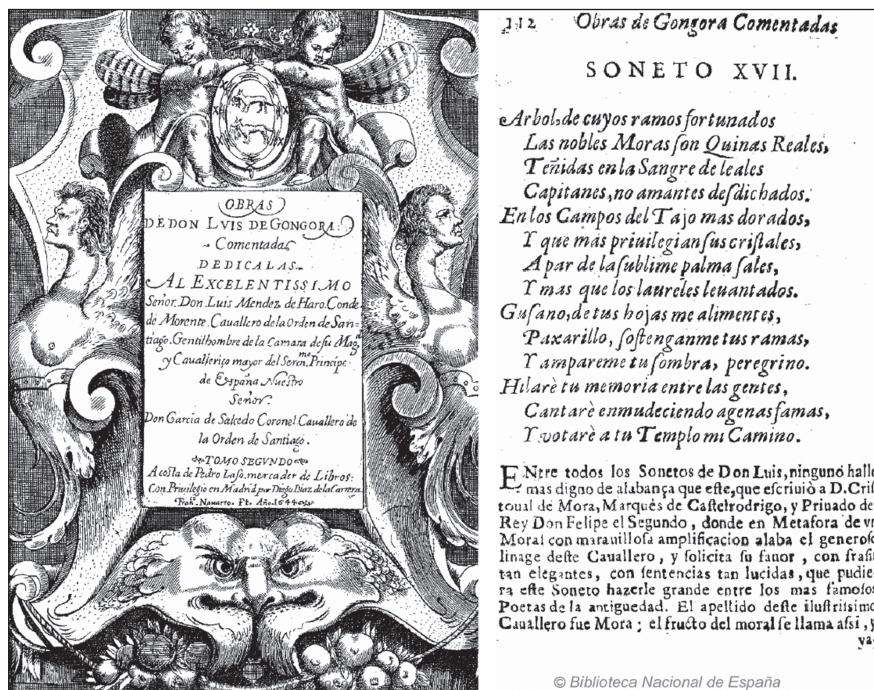 OBRAS
DE DON LVIS DE GONGORA
Comentadas
DEDICALAS
AL EXCELENTISSIMO
Señor. Don Luis Mendez de Haro. Conde
de Morente. Cauallero de la Orden de San-
tiago. Gentilhombre de la Camara de su Mag.
y Cauallerizo mayor del Seren.mo Principe
de España Nuestro
Señor.
Don Garcia de Salcedo Coronel Cauallero de
la Orden de Santiago.
TOMO SEGVNDO
A costa de Pedro Laso, mercader de Libros:
Con Privilegio en Madrid, por Diego Diaz de la Carrera
Navarro. Ft. Año. 1644
112 Obras de Gongora Comentadas
SONETO XVII.
Arbol, de cuyos ramos fortunados
Las nobles Moras ſon Quinas Reales,
Teñidas en la Sangre de leales
Capitanes, no amantes deſdichados.
En los Campos del Tajo mas dorados,
Y que mas priuilegian ſus criſtales,
A par de la ſublime palma ſales,
Y mas que los laureles leuantados.
Guſano, de tus hojas me alimentes,
Paxarillo, ſoſtenganme tus ramas,
Y ampareme tu ſombra, peregrino.
Hilarè tu memoria entre las gentes,
Cantarè enmudeciendo agenas famas,
Y votarè a tu Templo mi Camino.
ENtre todos los Sonetos de Don Luis, ninguno hallo
mas digno de alabança que eſte, que eſcriuiò a D. Criſ
toual de Mora, Marquès de Caſtelrodrigo, y Priuado de
Rey Don Felipe el Segundo, donde en Metafora de vn
Moral con marauilloſa amplificacion alaba el generoſo
linage deſte Cauallero, y ſolicita ſu fauor, con fraſis
tan elegantes, con ſentencias tan lucidas, que pudie-
ra eſte Soneto hazerle grande entre los mas famoſos
Poetas de la antiguedad. El apellido deſte iluſtriſsimo
Cauallero fue Mora; el fructo del moral ſe llama aſsi, y
ya
© Biblioteca Nacional de España